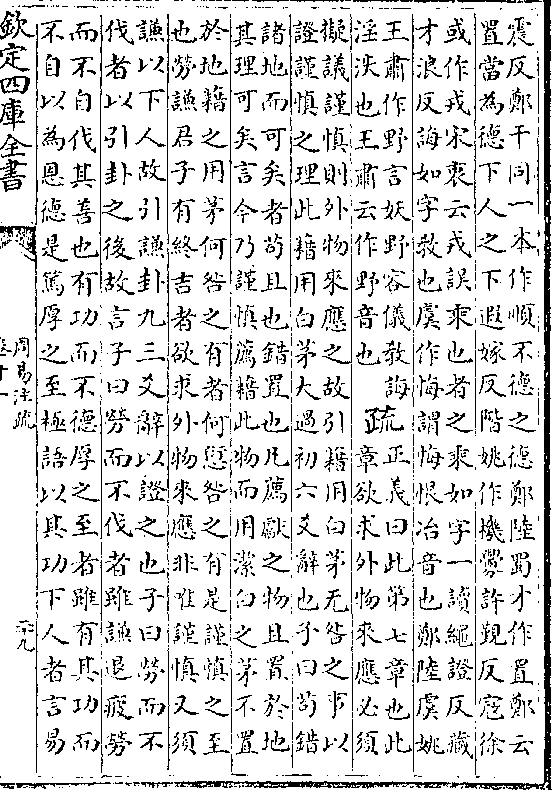 震反鄭干同一本作順不德之德鄭陸蜀才作置鄭云
置當為德下人之下遐嫁反階姚作機釁許覲反寇徐
或作戎宋衷云戎誤乘也者之乘如字一讀繩證反藏
才浪反誨如字教也虞作悔謂悔恨冶音也鄭陸虞姚
王肅作野言妖野容儀教誨
淫泆也王肅云作野音也疏正義曰此第七章也此章欲求外物來應必須
擬議謹慎則外物來應之故引藉用白茅无咎之事以
證謹慎之理此藉用白茅大過初六爻辭也子曰苟錯
諸地而可矣者苟且也錯置也凡薦獻之物且置於地
其理可矣言今乃謹慎薦藉此物而用潔白之茅不置
於地藉之用茅何咎之有者何愆咎之有是謹慎之至
也勞謙君子有終吉者欲求外物來應非唯謹慎又須
謙以下人故引謙卦九三爻辭以證之也子曰勞而不
伐者以引卦之後故言子曰勞而不伐者雖謙退疲勞
而不自伐其善也有功而不德厚之至者雖有其功而
不自以為恩德是篤厚之至極語以其功下人者言易
欽定四庫全書
周易注疏
卷十一
二十九